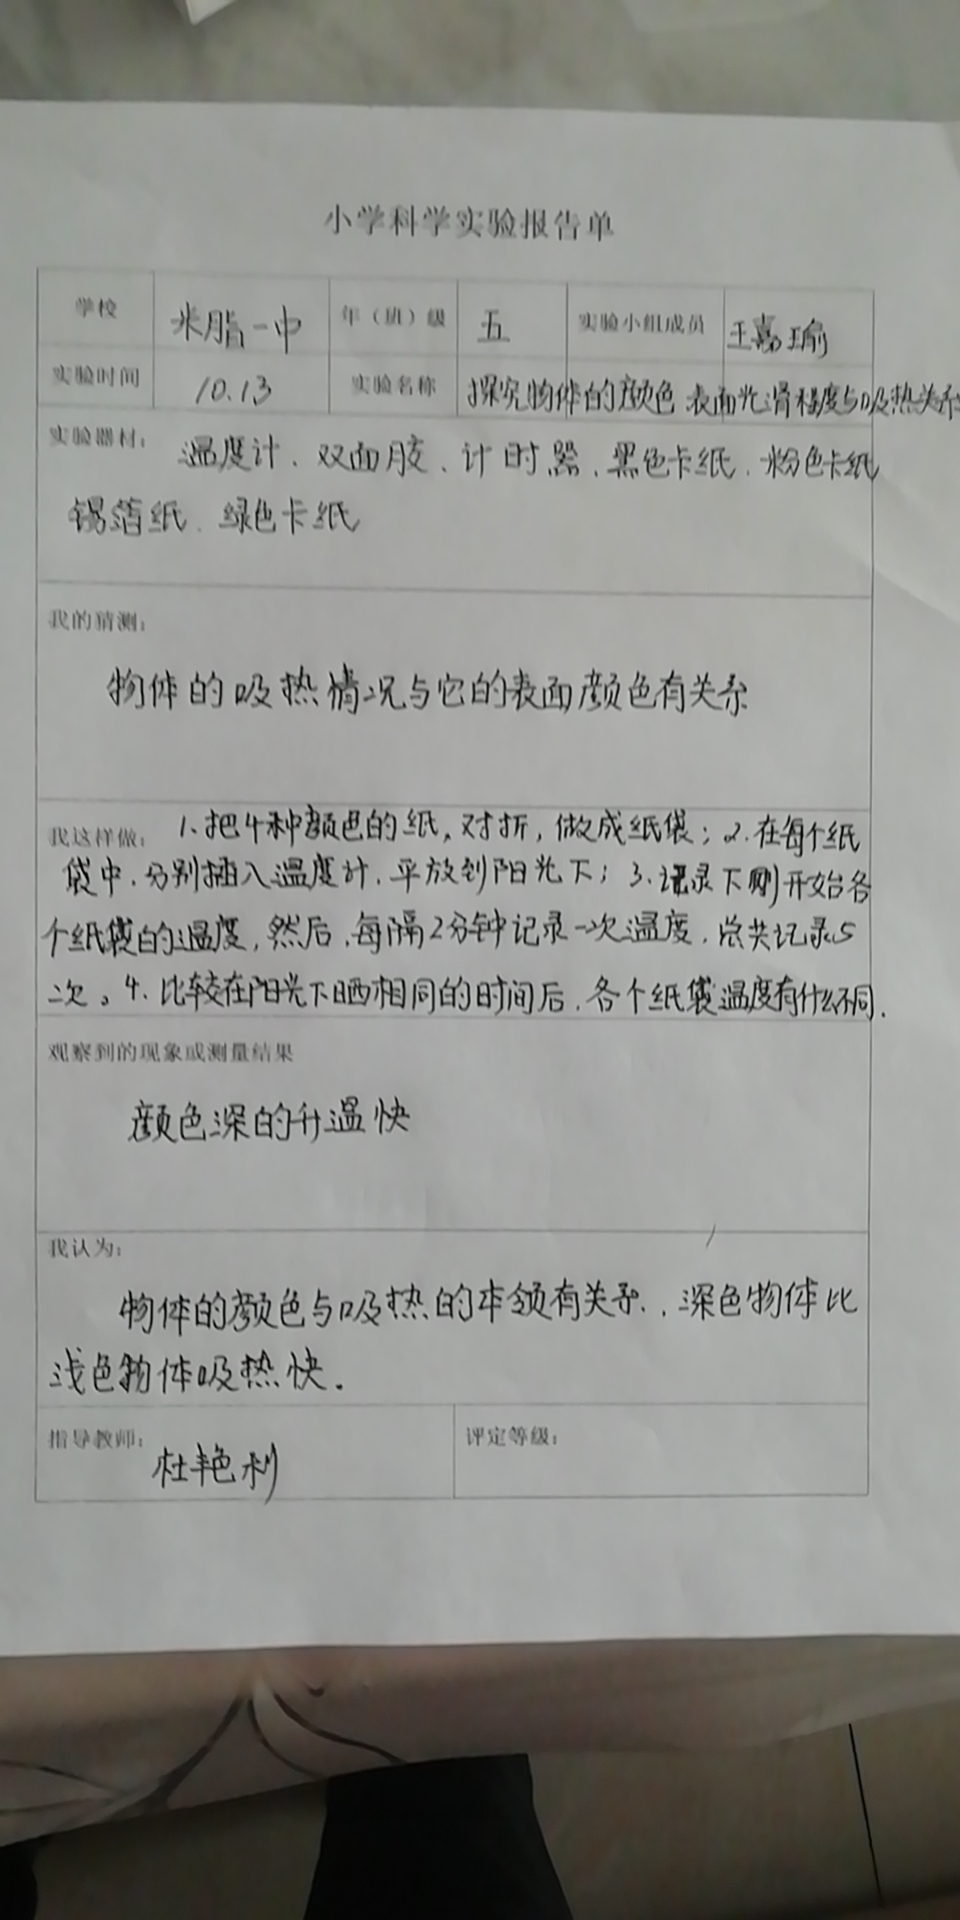 小学科学实验报告单
学校 米脂一中 年（班）级 五 实验小组成员 王嘉瑜
实验时间 10.13 实验名称 探究物体的颜色 表面光滑程度与吸热关系
实验器材： 温度计、双面胶、计时器、黑色卡纸、粉色卡纸
锡箔纸、绿色卡纸
我的猜测：
物体的吸热情况与它的表面颜色有关系
我这样做： 1、把4种颜色的纸，对折，做成纸袋；2.在每个纸
袋中，分别插入温度计，平放到阳光下；3.记录下刚开始各
个纸袋的温度，然后，每隔2分钟记录一次温度，总共记录5
次。4、比较在阳光下晒相同的时间后，各个纸袋温度有什么不同.
观察到的现象或测量结果
颜色深的升温快
我认为：
物体的颜色与吸热的本领有关系，深色物体比
浅色物体吸热快.
指导教师： 杜艳利 评定等级：